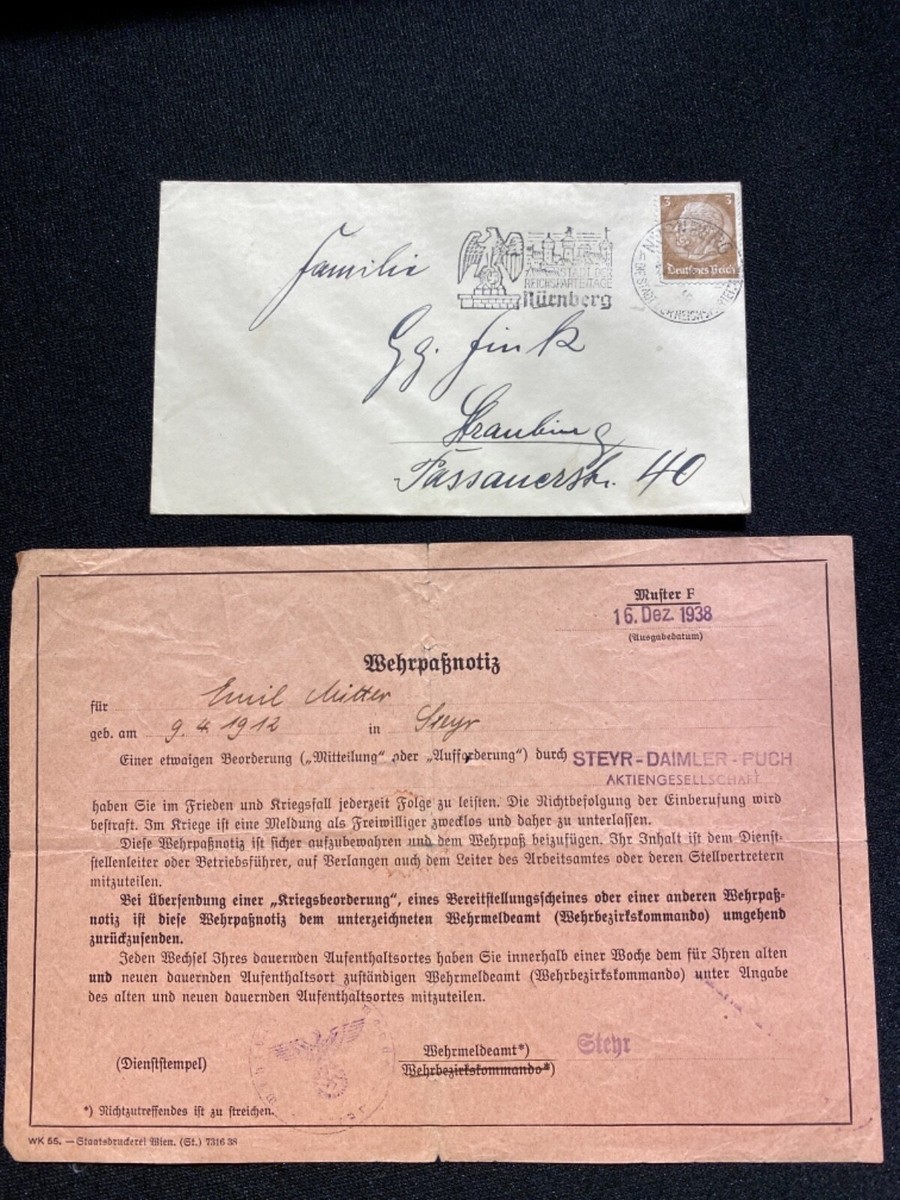 Familie
Gg. Fink
Straubing
Passauerstr. 40
STADT DER
REICHSPARTEITAGE
Nürnberg
3 3
Deutsches Reich
Muster F
16. Dez. 1938
(Ausgabedatum)
Wehrpaßnotiz
für Emil Mitter
geb. am 9. 4. 1912 in Steyr
Einer etwaigen Beorderung („Mitteilung“ oder „Aufforderung“) durch STEYR-DAIMLER-PUCH
AKTIENGESELLSCHAFT
haben Sie im Frieden und Kriegsfall jederzeit Folge zu leisten. Die Nichtbefolgung der Einberufung wird
bestraft. Im Kriege ist eine Meldung als Freiwilliger zwecklos und daher zu unterlassen.
Diese Wehrpaßnotiz ist sicher aufzubewahren und dem Wehrpaß beizufügen. Ihr Inhalt ist dem Dienst-
stellenleiter oder Betriebsführer, auf Verlangen auch dem Leiter des Arbeitsamtes oder deren Stellvertretern
mitzuteilen.
Bei Übersendung einer „Kriegsbeorderung“, eines Bereitstellungsscheines oder einer anderen Wehrpaß-
notiz ist diese Wehrpaßnotiz dem unterzeichneten Wehrmeldeamt (Wehrbezirkskommando) umgehend
zurückzusenden.
Jeden Wechsel Ihres dauernden Aufenthaltsortes haben Sie innerhalb einer Woche dem für Ihren alten
und neuen dauernden Aufenthaltsort zuständigen Wehrmeldeamt (Wehrbezirkskommando) unter Angabe
des alten und neuen dauernden Aufenthaltsortes mitzuteilen.
(Dienststempel)
Wehrmeldeamt*) Steyr
Wehrbezirkskommando*)
*) Nichtzutreffendes ist zu streichen.
WK 55. — Staatsdruckerei Wien. (St.) 7316 38